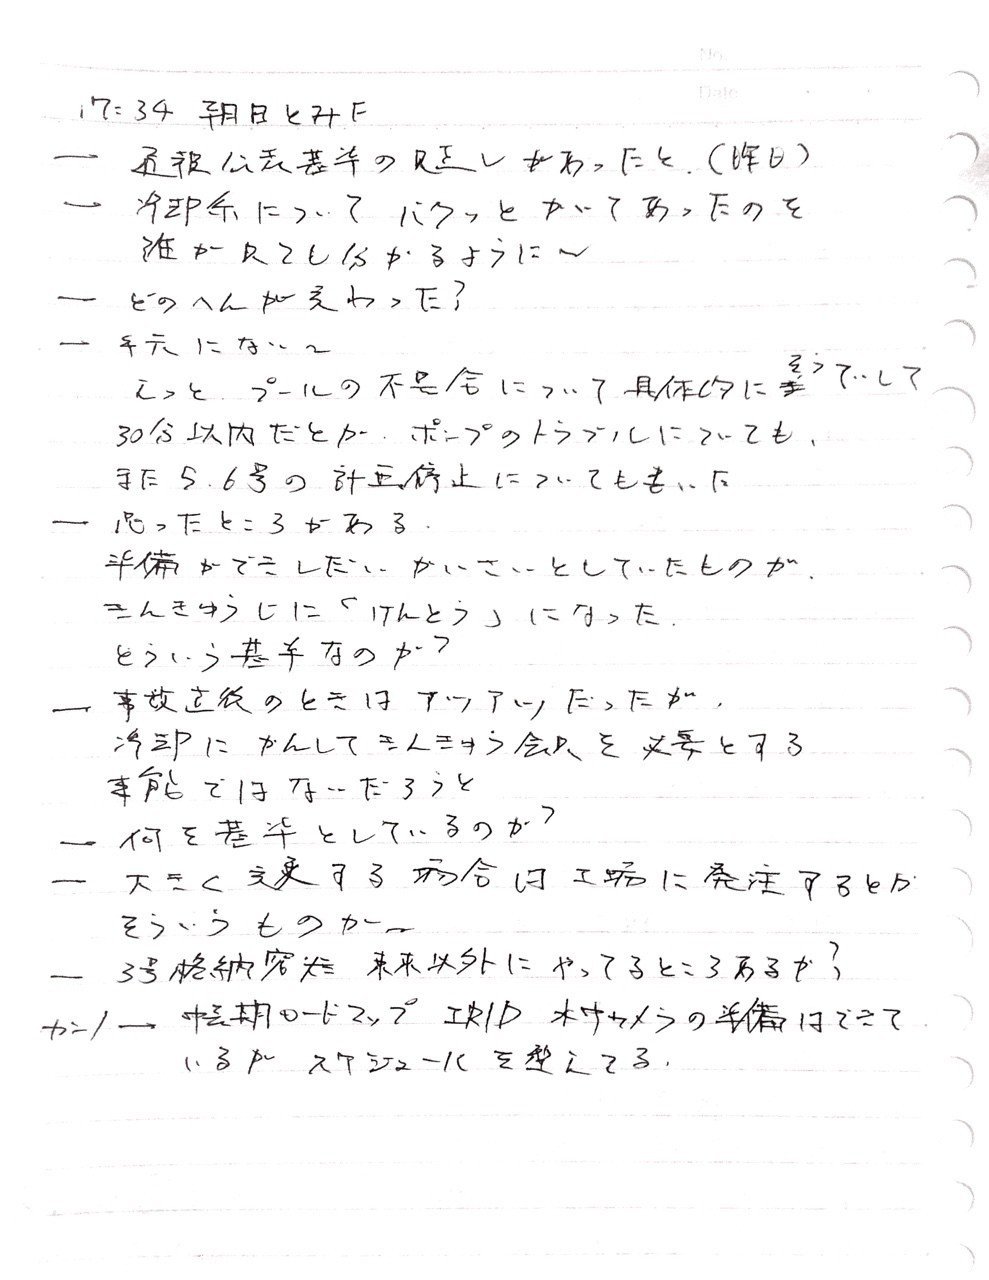 No.
Date
17:34 朝日とみた
― 通報公表基準の見直しがあったと.(昨日)
― 冷却系について バクッと かいてあったのを
誰が見ても分かるように〜
― どのへんが変わった?
― 手元にない〜
えっと プールの不具合について具体的に そうていして
30分以内だとか. ポンプのトラブルについても、
また5.6号の計画停止についても書いた
― 思ったところがある.
準備ができしだい かいさいとしていたものが.
きんきゅうじに「けんとう」になった.
どういう基準なのか?
― 事故直後のときは アツアツだったが.
冷却に かんして きんきゅう会見を必要とする
事態ではないだろうと
― 何を基準としているのか?
― 大きく変更する場合は工場に発注するとか
そういうものか〜
― 3号格納容器 未来以外に やってるところあるか?
カン1 ― 中長期ロードマップ IRID 水中カメラの準備はできて
いるが スケジュールを整えてる.